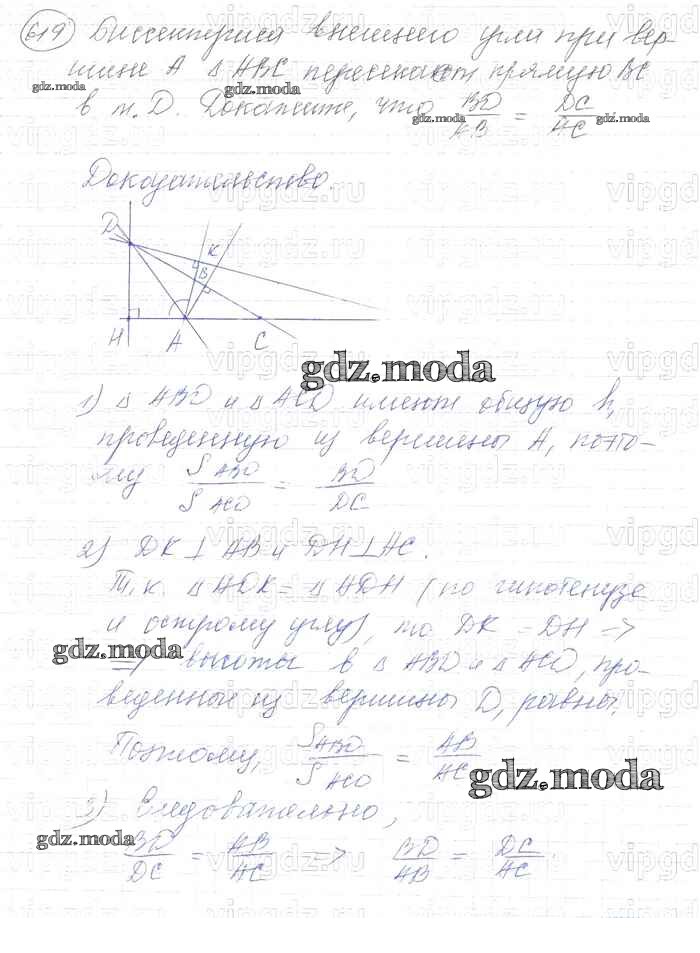 619 Биссектриса внешнего угла при вер-
шине A △ ABC пересекает прямую BC
gdz.moda gdz.moda
в т. D. Докажите, что BD/AB = DC/AC
gdz.moda gdz.moda
Доказательство.
D K B
H A C
gdz.moda
1) △ ABD и △ ACD имеют общую h,
проведенную из вершины A, поэто-
му S ABD / S ACD = BD / DC
2) DK ⊥ AB и DH ⊥ AC.
Т.к. △ ADK = △ ADH (по гипотенузе
и острому углу), то DK = DH =>
gdz.moda
=> высоты в △ ABD и △ ACD, про-
веденные из вершины D, равны.
Поэтому, S ABD / S ACD = AB / AC
gdz.moda
3) Следовательно,
gdz.moda
BD/DC = AB/AC => BD/AB = DC/AC
vipgdz.ru